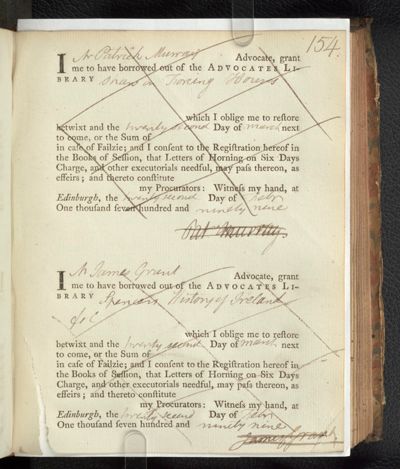 154.
I Mr Patrick Murray Advocate, grant
me to have borrowed out of the ADVOCATES LI-
BRARY on Horses
which I oblige me to restore
betwixt and the twenty second Day of March next
to come, or the Sum of
in case of Failzie; and I consent to the Registration hereof in
the Books of Session, that Letters of Horning on Six Days
Charge, and other executorials needful, may pass thereon, as
effeirs; and thereto constitute
my Procurators: Witness my hand, at
Edinburgh, the twenty second Day of febr
One thousand seven hundred and ninety nine
Pat Murray.
I Mr James Grant Advocate, grant
me to have borrowed out of the ADVOCATES LI-
BRARY Spencers History of Ireland
fol
which I oblige me to restore
betwixt and the twenty second Day of march next
to come, or the Sum of
in case of Failzie; and I consent to the Registration hereof in
the Books of Session, that Letters of Horning on Six Days
Charge, and other executorials needful, may pass thereon, as
effeirs; and thereto constitute
my Procurators: Witness my hand, at
Edinburgh, the twenty second Day of febr
One thousand seven hundred and ninety nine
James Grant